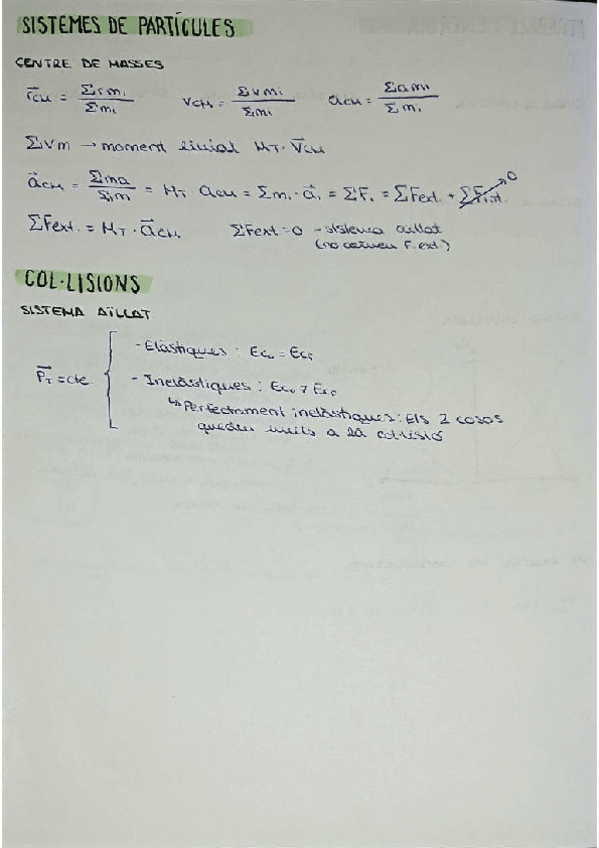 SISTEMES DE PARTÍCULES
CENTRE DE MASSES
r⃗CM = Σr mi / Σmi   VCM = Σv mi / Σmi   aCM = Σa mi / Σmi
ΣVm → moment linial MT · V⃗CM
a⃗CM = Σma / Σm = MT · aCM = Σmi · a⃗i = ΣFi = ΣFext. + ΣFint. 0
ΣFext. = MT · a⃗CM   ΣFext = 0 - sistema aïllat
(no actuen F. ext.)
COL·LISIONS
SISTEMA AÏLLAT
- Elàstiques : Eco = Ecf
P⃗T = cte
- Inelàstiques : Eco ≠ Ecf
↳ Perfectament inelàstiques: Els 2 cosos
queden units a la col·lisió